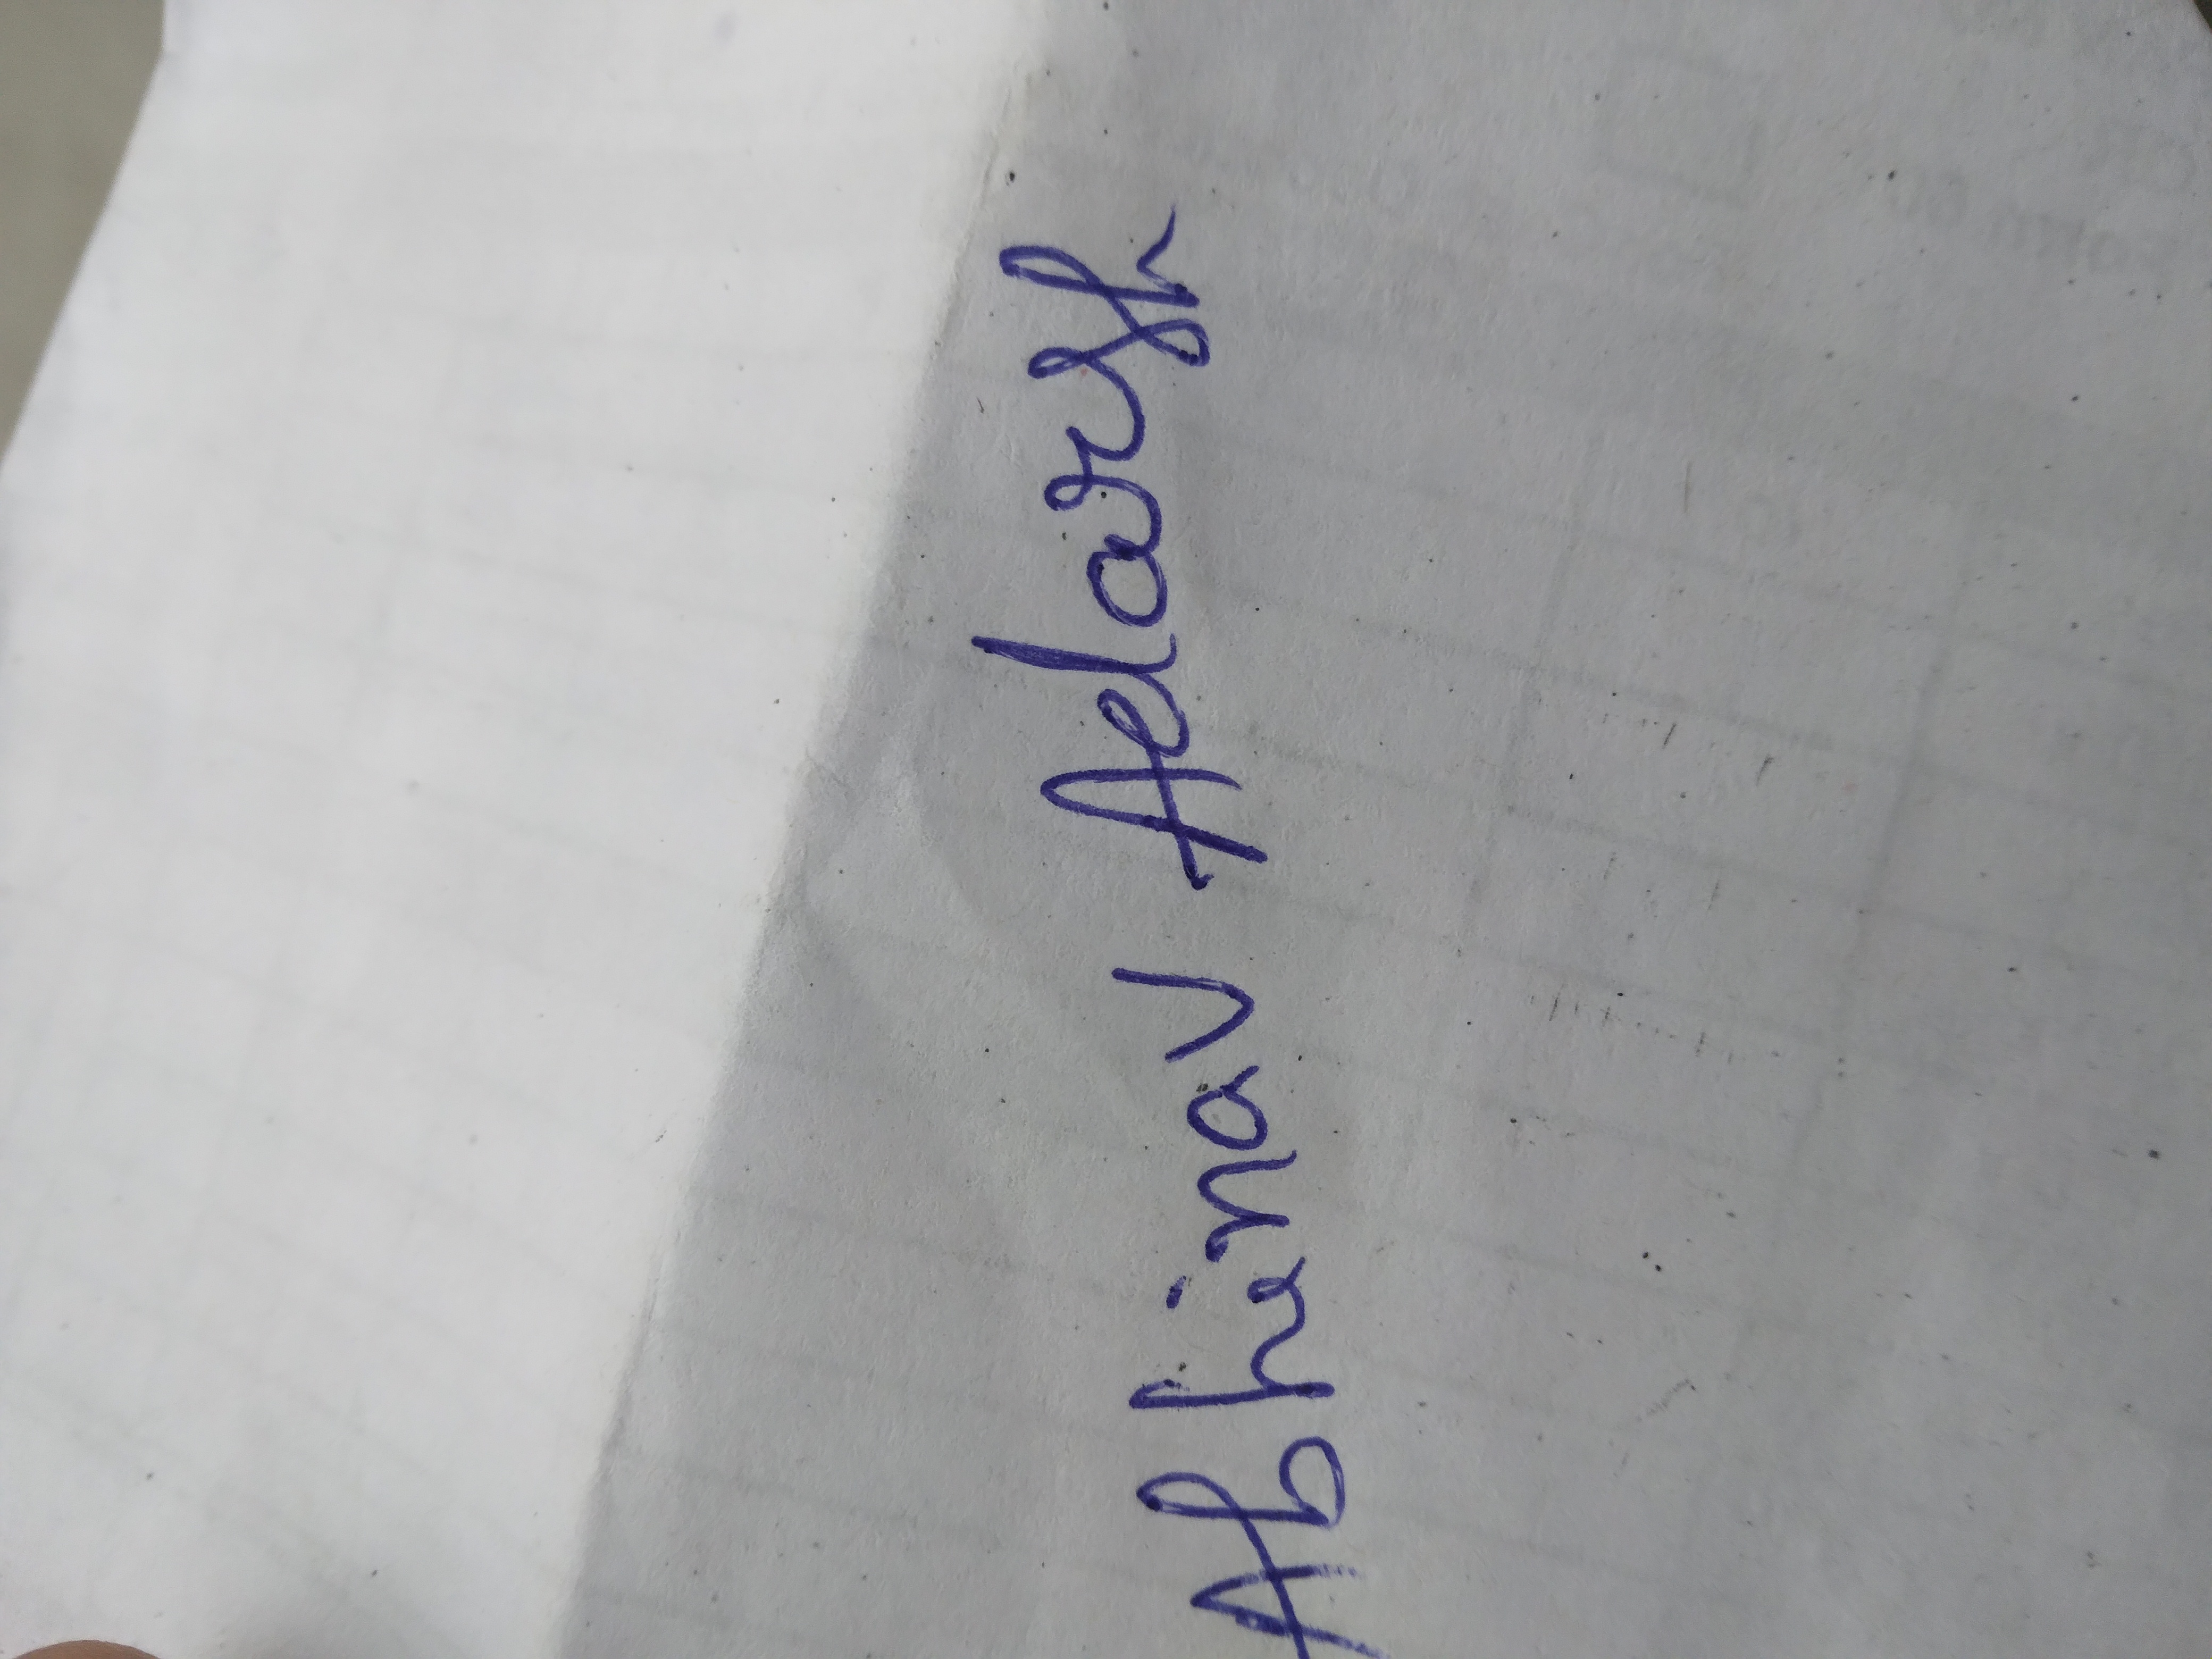 Abhinav Adarsh